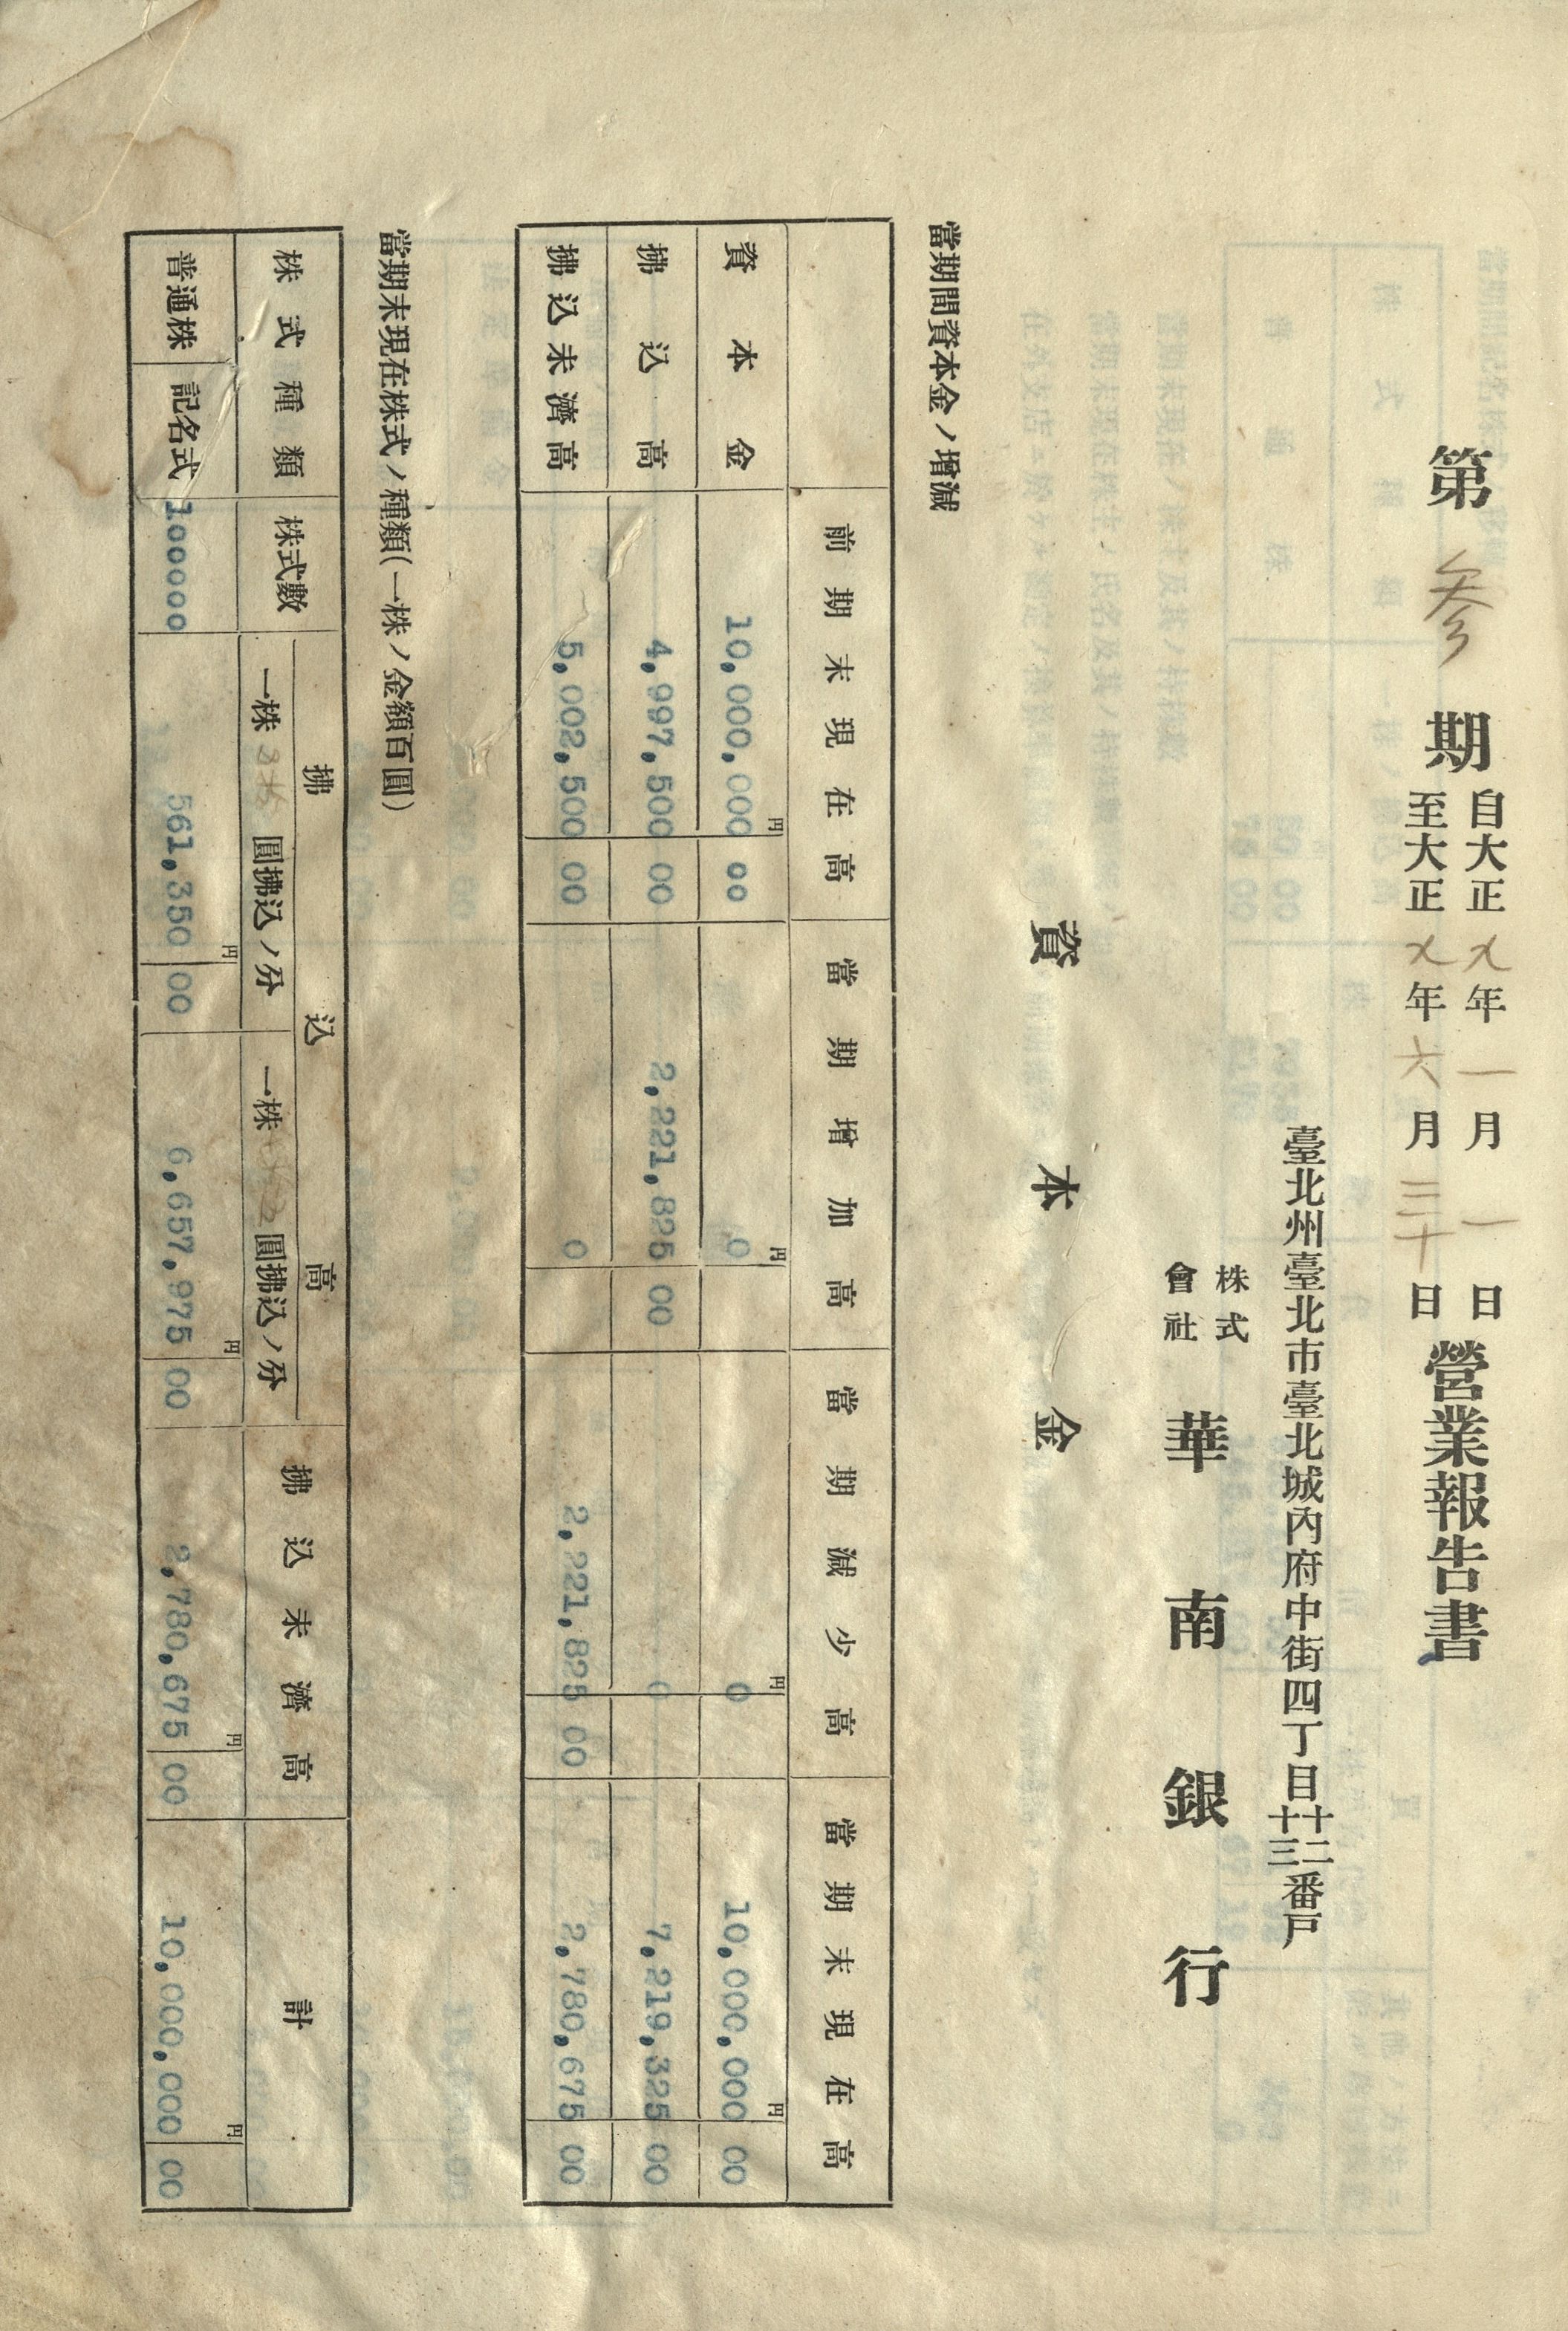 第參期 自大正九年一月一日 至大正九年六月三十日 營業報告書
臺北州臺北市臺北城內府中街四丁目十二十三番戶
株式會社 華南銀行
資本金
當期間資本金ノ增減
前期末現在高 當期增加高 當期減少高 當期末現在高
資本金 10,000,000円00 0円 0円 10,000,000円00
拂込高 4,997,500 00 2,221,825 00 0 7,219,325 00
拂込未濟高 5,002,500 00 0 2,221,825 00 2,780,675 00
當期末現在株式ノ種類(一株ノ金額百圓)
株式種類 株式數 拂込高 拂込未濟高 計
一株 圓拂込ノ分 一株 圓拂込ノ分
普通株 記名式 100000 561,350円00 6,657,975円00 2,780,675円00 10,000,000円00